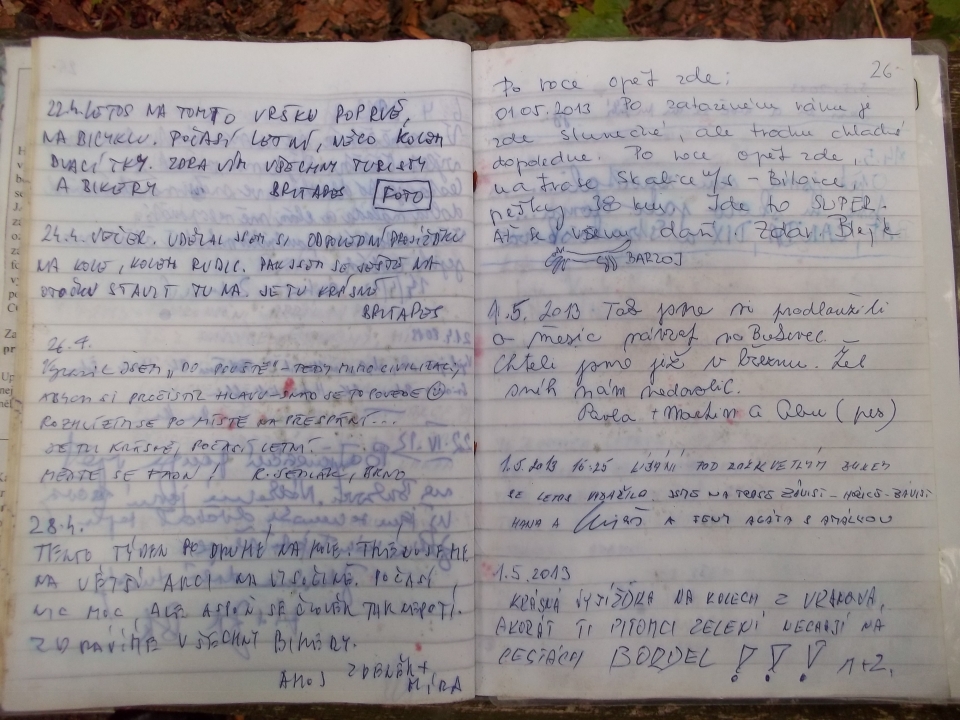 22.4. LETOS NA TOMTO VRŠKU POPRVÉ,
NA BICYKLU. POČASÍ LETNÍ, NĚCO KOLEM
DVACÍTKY. ZDRAVÍM VŠECHNY TURISTY
A BIKERY BRITAPES FOTO
24.4. VEČER. UDĚLAL JSEM SI ODPOLEDNÍ PROJÍŽĎKU
NA KOLE, KOLEM RUDIC. PAK JSEM SE JEŠTĚ NA
OTOČKU STAVIL TU NA. JE TU KRÁSNĚ
BRITAPES
26.4.
VYRAZIL JSEM „DO POUŠTĚ“ - TEDY MIMO CIVILIZACI,
ABYCH SI PROČISTIL HLAVU - SNAD SE TO POVEDE
ROZHLÍŽÍM SE PO MÍSTĚ NA PŘESPÁNÍ...
JE TU KRÁSNĚ, POČASÍ LETNÍ.
MĚJTE SE FAJN! R. SEDLÁK, BRNO
28.4.
TENTO TÝDEN PO DRUHÉ NA KOLE. TRÉNUJEME
NA VĚTŠÍ AKCI NA VYSOČINĚ. POČASÍ
NIC MOC ALE ASPOŇ SE ČLOVĚK TAK NEPOTÍ.
ZDRAVÍME VŠECHNY BIKERY.
AHOJ ZDENĚK +
MÍRA
26.
Po roce opět zde:
01.05.2013 Po zataženém ránu je
zde slunečné, ale trochu chladné
dopoledne. Po roce opět zde,
na trase Skalice n/S - Bílovice,
pěšky 38 km. Jde to SUPER.
Ať se i všem daří. Zdar. Blejk
BARZOJ
1.5. 2013 Tak jsme si prodloužili
o měsíc návrat na Bukovec.
Chtěli jsme již v březnu. Žel
sníh nám nedovolil.
Pavla + Martin a (pes)
1.5.2013 16:25 LÍBÁNÍ POD ROZKVETLÝM
SE LETOS JSME NA TRASE
HANA A A FENY AGÁTA S AMÁLKOU
1.5.2013
KRÁSNÁ VYJÍŽĎKA NA KOLECH Z VRANOVA,
AKORÁT TI PITOMCI ZELENÍ NECHAJÍ NA
CESTÁCH BORDEL !!! M+Z.